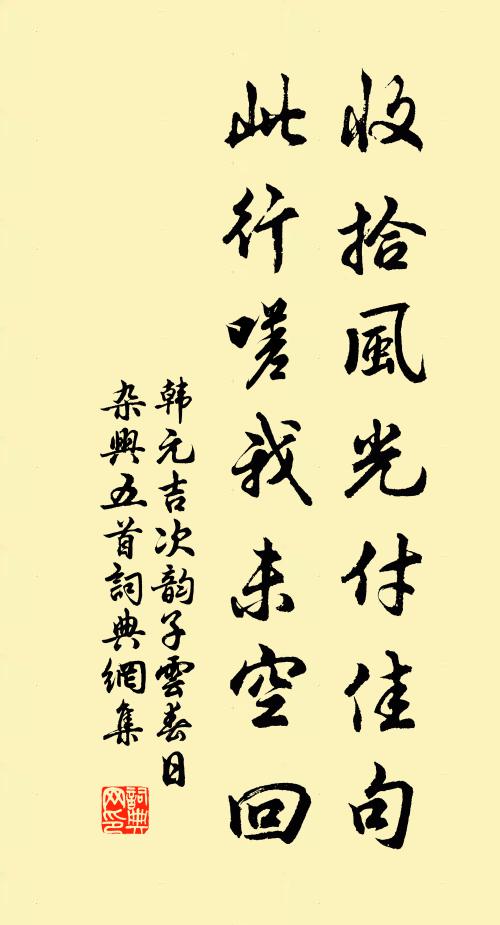 收拾風光付佳句
此行嗟我未空回
韩元吉次韵子雲春日
杂興五首詞典網集
詞典
网印